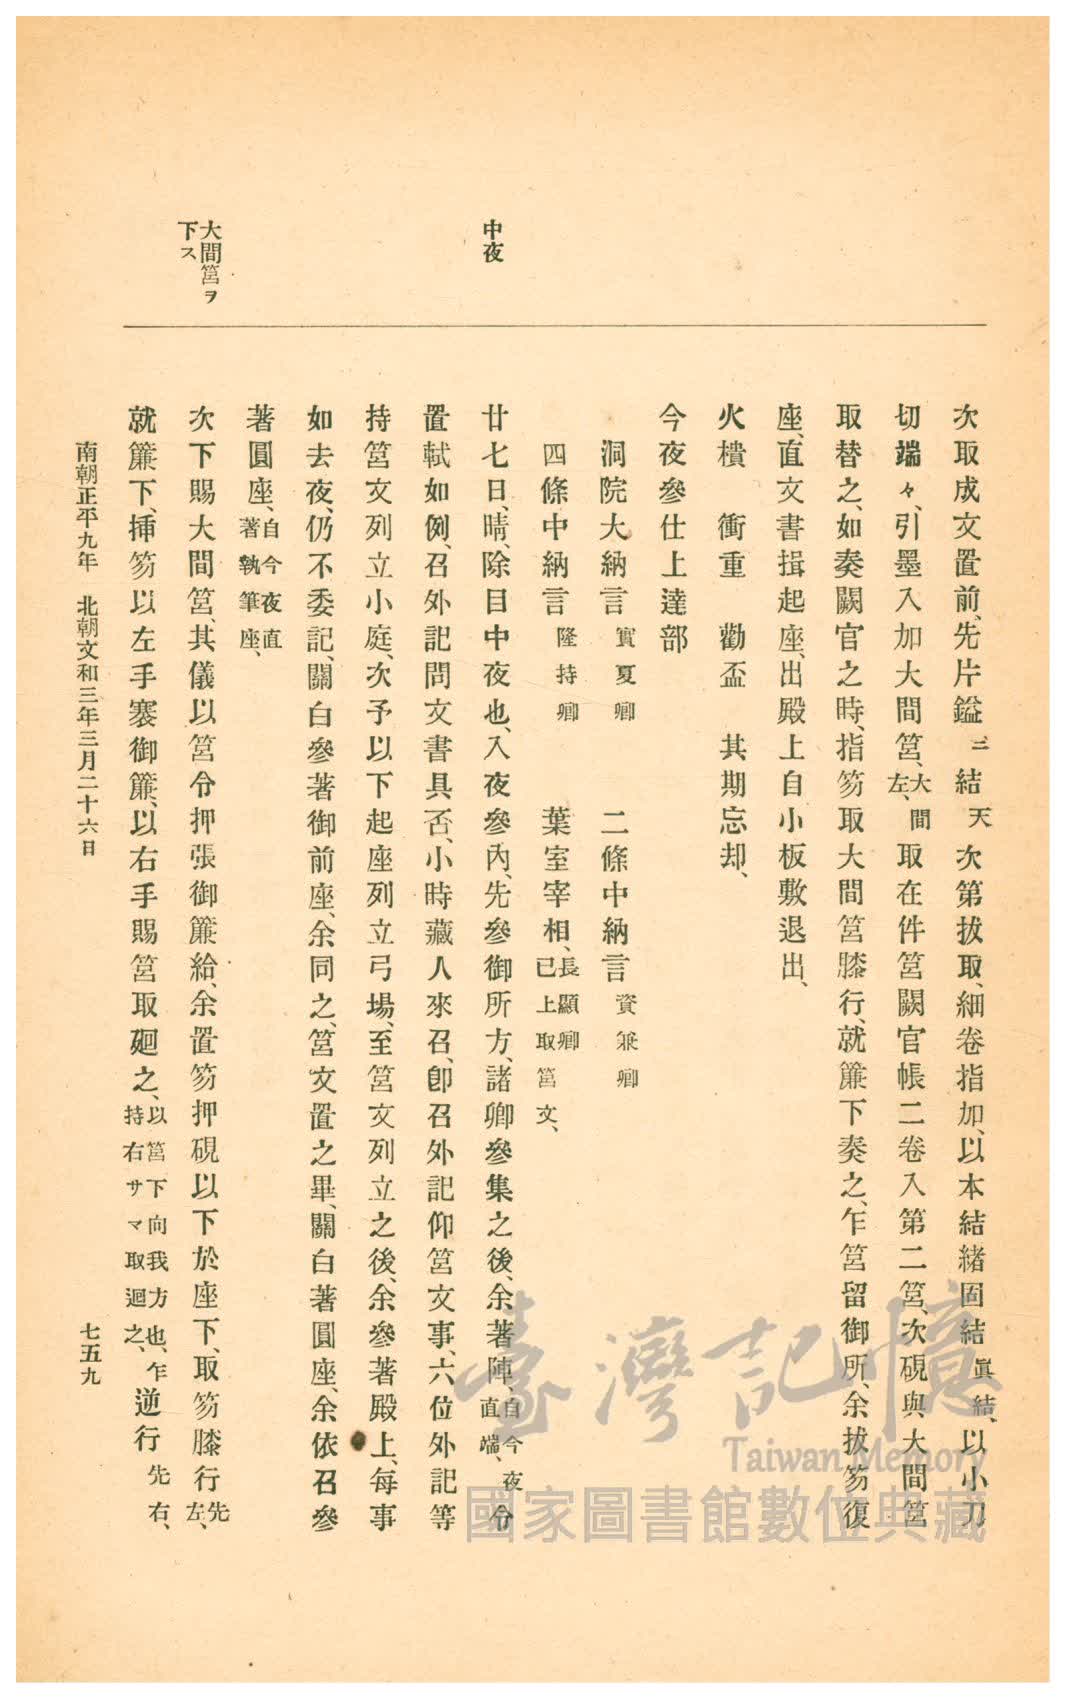 中夜
大間筥ヲ
下ス
次取成文置前、先片鎰三結天次第拔取、細卷指加、以本結緒固結眞結、以小刀
切端々、引墨入加大間筥、大間左、取在件筥闕官帳二卷入第二筥、次硯與大間筥
取替之、如奏闕官之時、指笏取大間筥膝行、就簾下奏之、乍筥留御所、余拔笏復
座、直文書揖起座、出殿上自小板敷退出、
火樻　衝重　勸盃　其期忘却、
今夜參仕上達部
洞院大納言實夏卿　二條中納言資兼卿
四條中納言隆持卿　葉室宰相、長顯卿已上取筥文、
廿七日、晴、除目中夜也、入夜參內、先參御所方、諸卿參集之後、余著陣、自今夜直端、令
置軾如例、召外記問文書具否、小時藏人來召、卽召外記仰筥文事、六位外記等
持筥文列立小庭、次予以下起座列立弓場、至筥文列立之後、余參著殿上、每事
如去夜、仍不委記、關白參著御前座、余同之、筥文置之畢、關白著圓座、余依召參
著圓座、自今夜直著執筆座、
次下賜大間筥、其儀以筥令押張御簾給、余置笏押硯以下於座下、取笏膝行先左、
就簾下、揷笏以左手褰御簾、以右手賜筥取廻之、以筥下向我方也、乍持右サマ取迴之、逆行先右、
南朝正平九年　北朝文和三年三月二十六日
七五九
臺灣記憶
Taiwan Memory
國家圖書館數位典藏